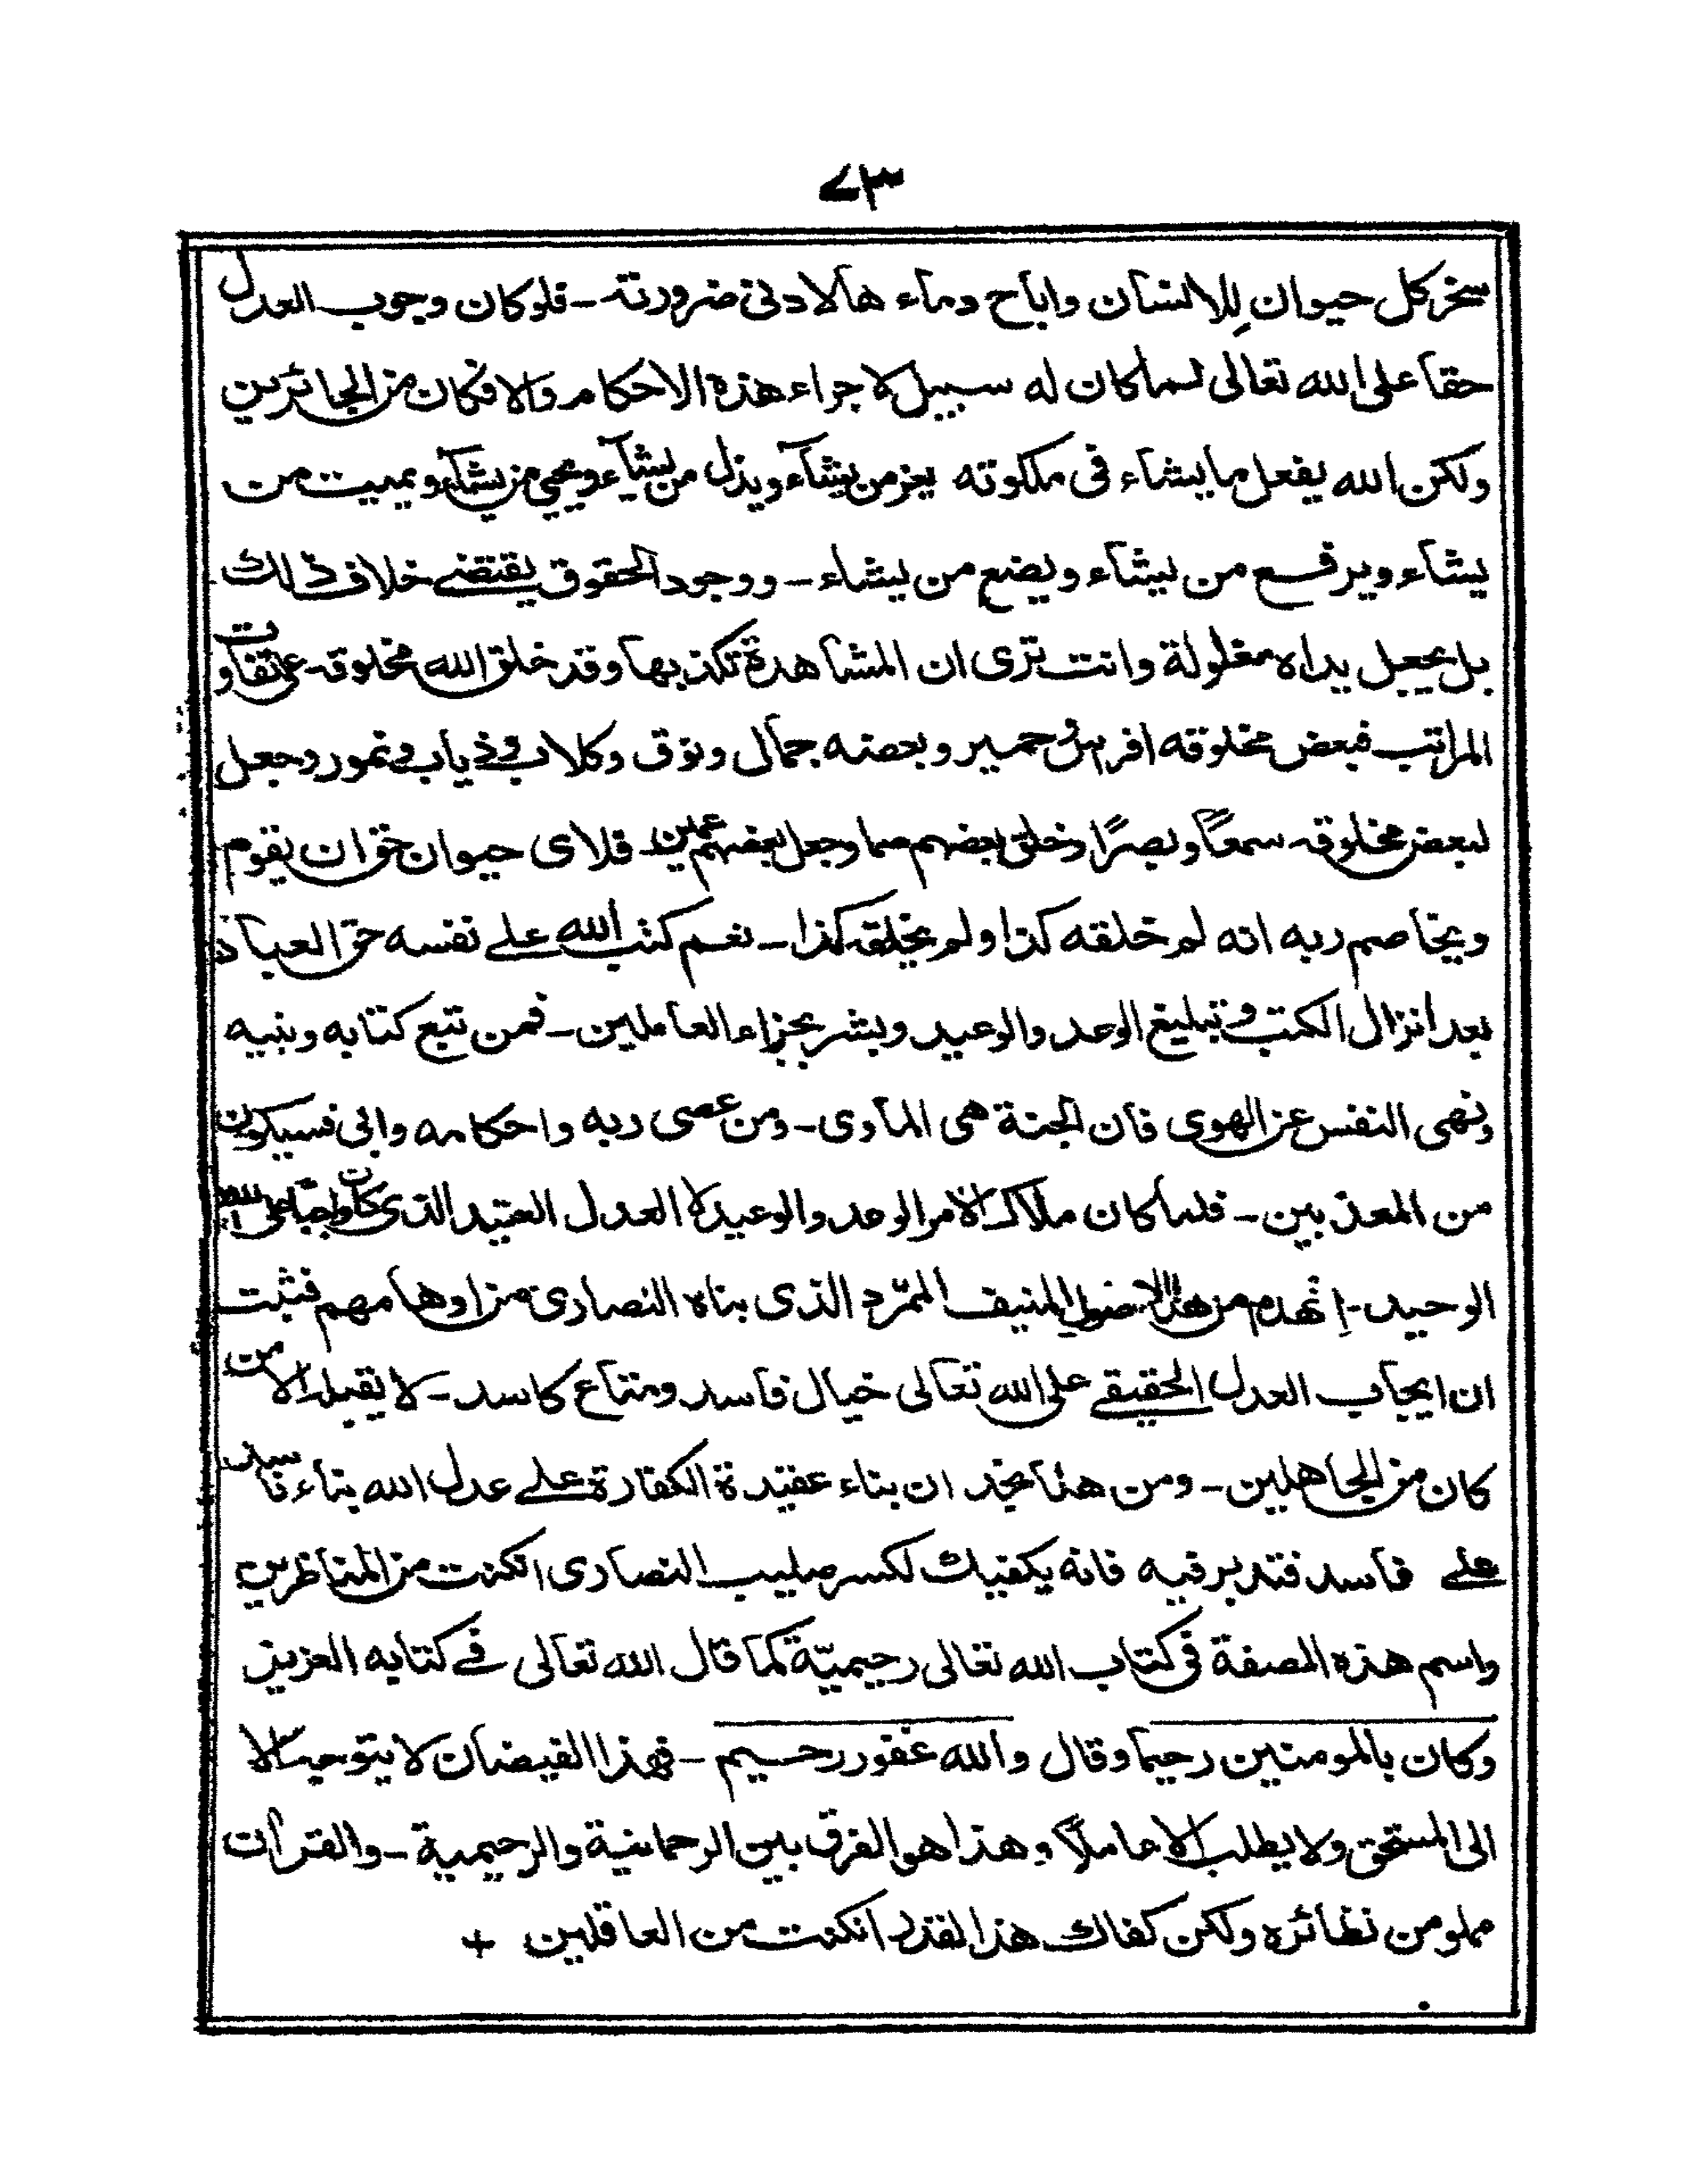 ٧٣
سخر كل حيوان للانسان واباح دماء ها لادنى ضرورته - فلو كان وجوب العدل
حقا على الله تعالى لما كان له سبيل لاجراء هذه الاحكام والا فكان من الجائرين
ولكن الله يفعل ما يشاء فى ملكوته يعز من يشآء ويذل من يشآء ويحيى من يشآء ويميت من
يشآء ويرفع من يشآء ويضع من يشاء - ووجود الحقوق يقتضے خلاف ذلك
بل يجعل يداه مغلولة وانت ترى ان المشاهدة تكذبها وقد خلق الله مخلوقه على تفاوت
المراتب فبعض مخلوقه افراس وحمير وبعضه جمال ونوق وكلاب وذياب ونمور وجعل
لبعض مخلوقه سمعًا وبصرًا وخلق بعضهم صما وجعل بعضهم عمين - فلاى حيوان حق ان يقوم
ويخاصم ربه انه لم خلقه كذا ولم يخلق كذا - نعم كتب الله علے نفسه حق العباد
بعد انزال الكتب وتبليغ الوعد والوعيد وبشر بجزاء العاملين - فمن تبع كتابه ونبيه
ونهى النفس عن الهوى فان الجنة هى المأوى - ومن عصى ربه واحكامه وابى فسيكون
من المعذبين - فلما كان ملاك الامر الوعد والوعيد لا العدل العتيد الذى كان واجبًا على الله
الوحيد - انهدم من هذا الاصول المنيف الممرّد الذى بناه النصارى من اوهامهم فثبت
ان ايجاب العدل الحقيقے على الله تعالى خيال فاسد ومتاع كاسد - لا يقبله الا من
كان من الجاهلين - ومن هنا نجد ان بناء عقيدة الكفارة علے عدل الله بناء فاسد
علے فاسد فتدبر فيه فانه يكفيك لكسر صليب النصارى انكنت من المناظرين
واسم هذه الصفة فى كتاب الله تعالى رحيميّة كما قال الله تعالى فے كتابه العزيز
وكان بالمومنين رحيما وقال والله غفور رحيم - فهذا الفيضان لا يتوجه الا
الى المستحق ولا يطلب الا عاملًا وهذا هو الفرق بين الرحمانية والرحيمية - والقرآن
مملو من نظائره ولكن كفاك هذا القدر انكنت من العاقلين +